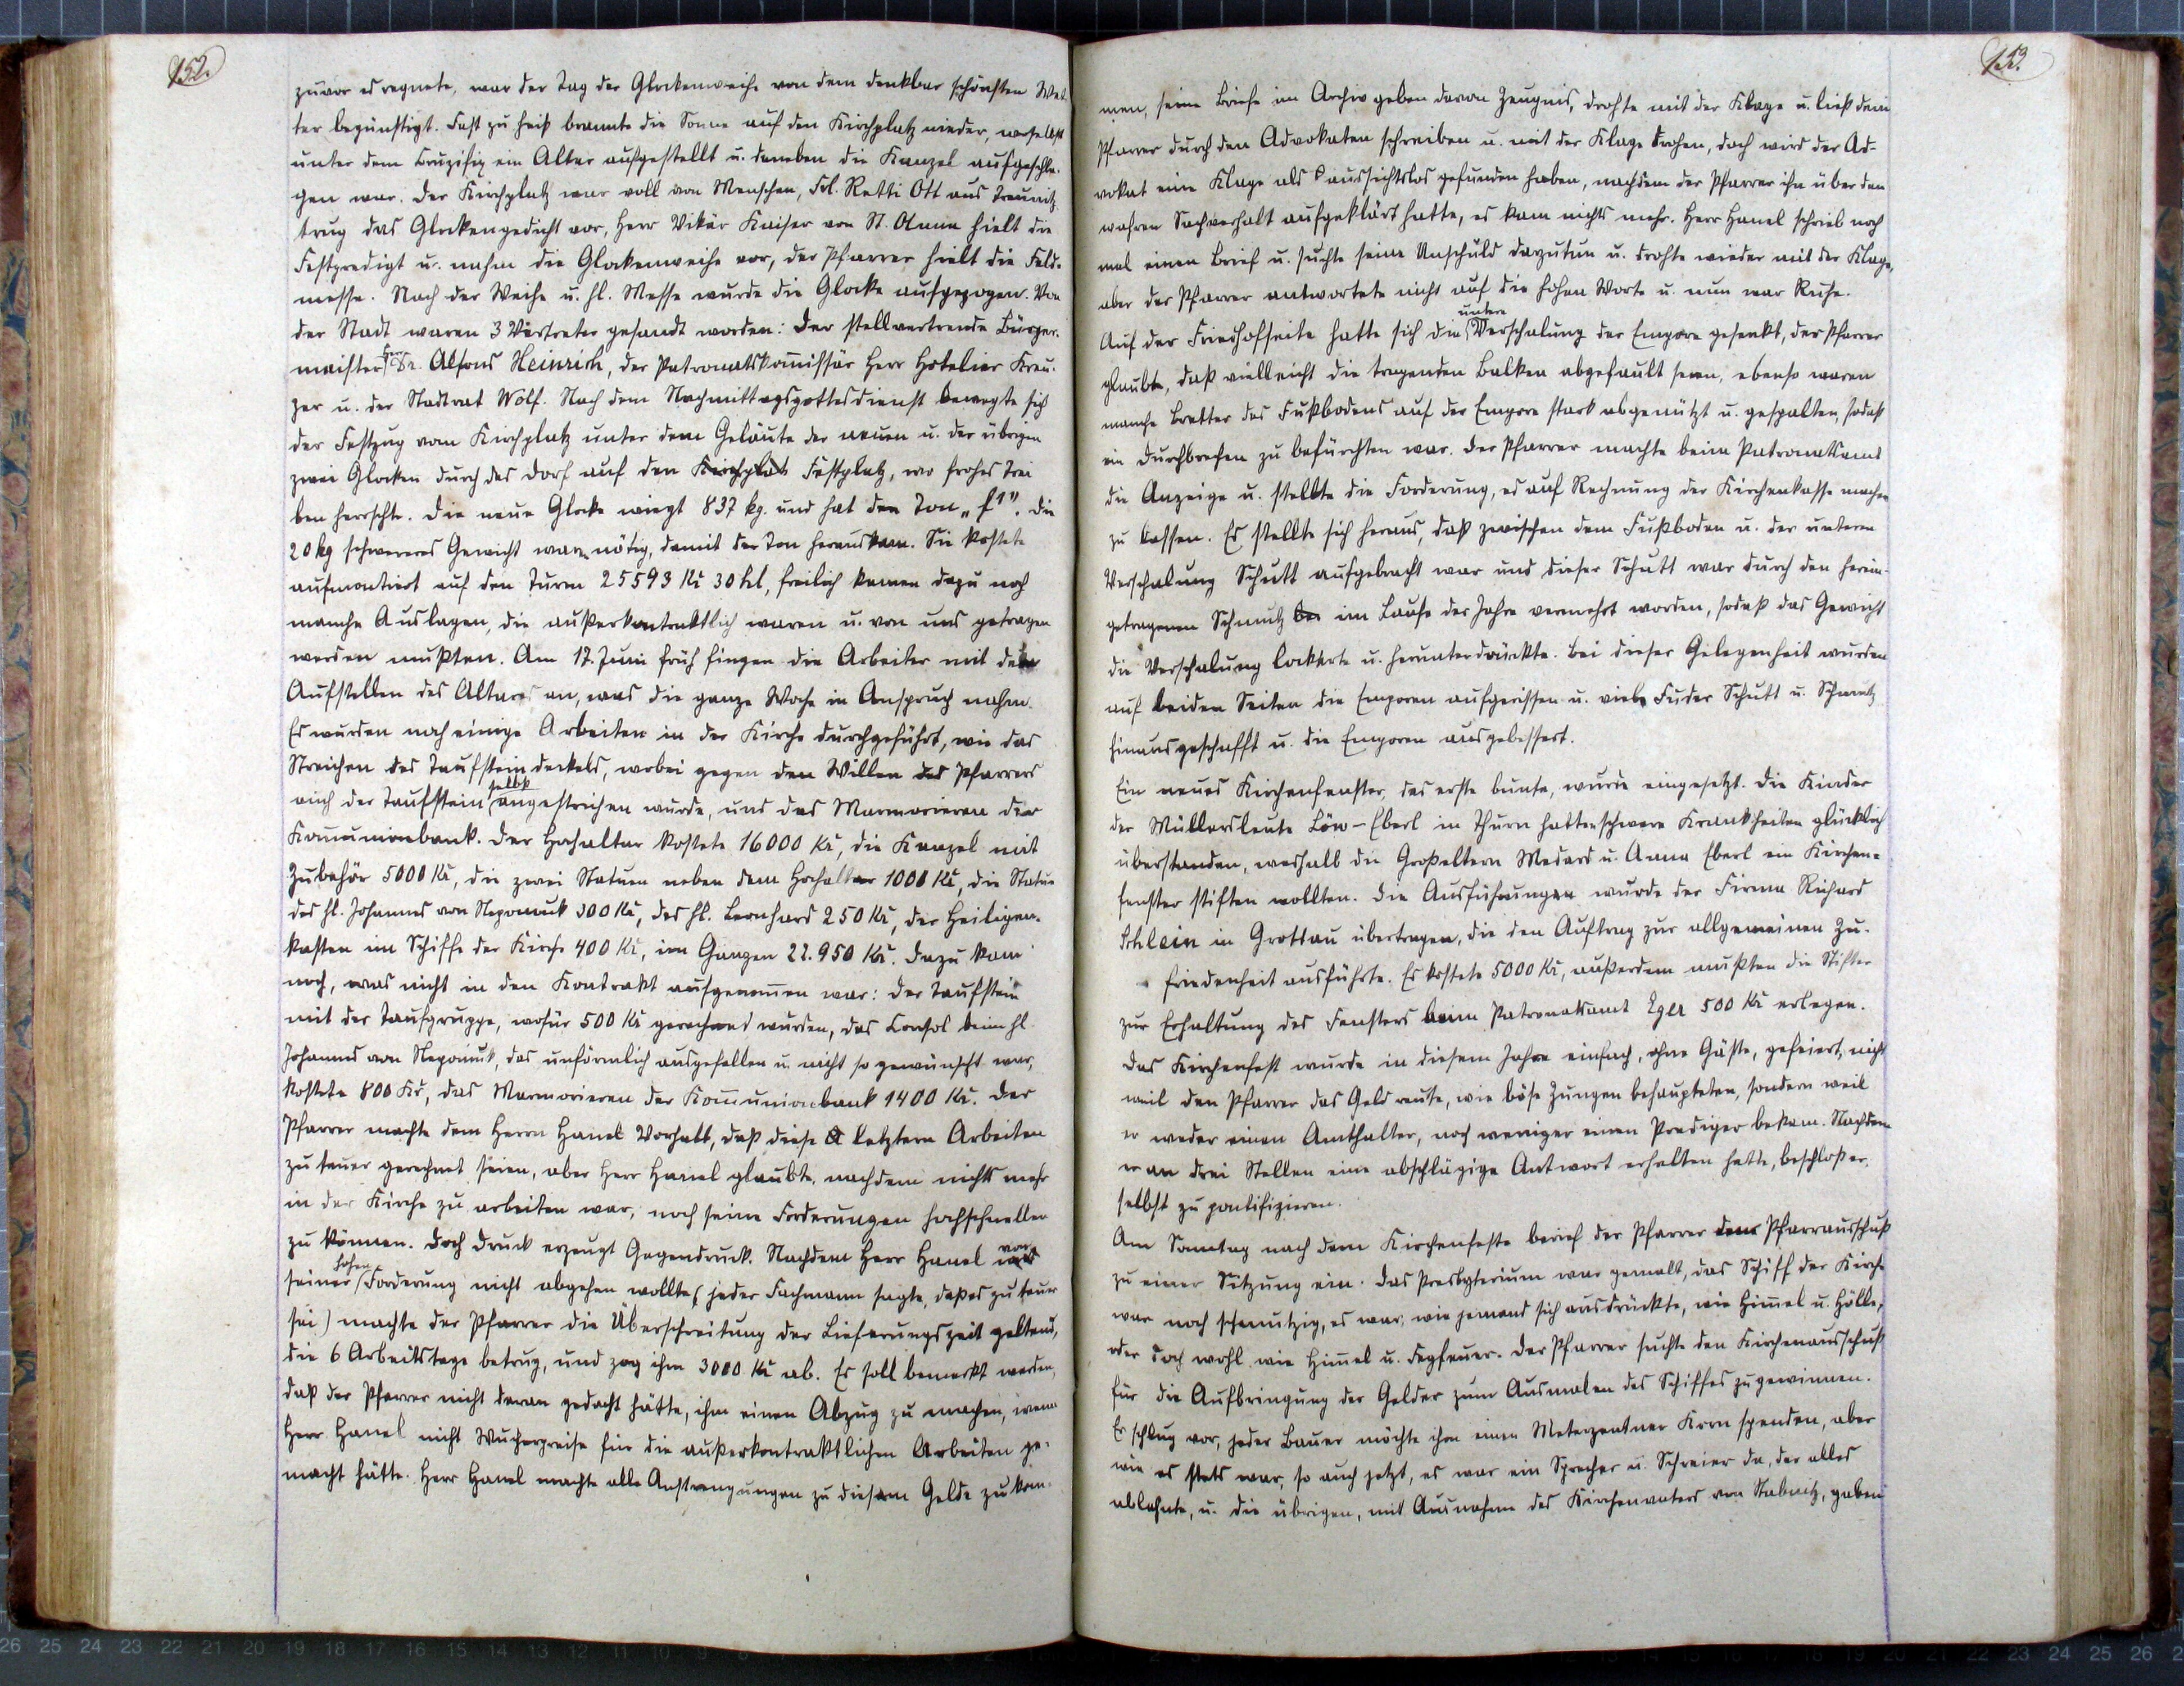 152.
zuvor es regnete, war der Tag der Glockenweihe von dem denkbar schönsten Wet-
ter begünstigt. Fast zu heiß brannte die Sonne auf den Kirchplatz nieder, woselbst
unter dem Kruzifix ein Altar aufgestellt u. daneben die Kanzel aufgeschla-
gen war. Der Kirchplatz war voll von Menschen, Frl. Retti Ott aus Treunitz
trug das Glockengedicht vor, Herr Vikär Kaiser von St. Anna hielt die
Festpredigt u. nahm die Glockenweihe vor, der Pfarrer hielt die Feld-
messe. Nach der Weihe u. hl. Messe wurde die Glocke aufgezogen. Von
der Stadt waren 3 Vertreter gesandt worden: Der stellvertrende Bürger-
meister Herr Dr. Alfons Heinrich, der Patronatskom̄issär Herr Hotelier Kreu-
zer u. der Stadtrat Wolf. Nach dem Nachmittagsgottesdienst bewegte sich
der Festzug vom Kirchplatz unter dem Geläute der neuen u. der übrigen
zwei Glocken durch das Dorf auf den Kirchplatz Festplatz, wo frohes Trei
ben herrschte. Die neue Glocke wiegt 837 kg. und hat den Ton „f¹". Die
20 kg schwereres Gewicht waren nötig, damit der Ton herauskam. Sie kostete
aufmontiert auf den Turm 25593 Kč 30 hl, freilich kamen dazu noch
manche Auslagen, die außerkontraktlich waren u. von uns getragen
werden mußten. Am 17. Juni früh fingen die Arbeiter mit dem
Aufstellen des Altares an, was die ganze Woche in Anspruch nahm.
Es wurden noch einige Arbeiten in der Kirche durchgeführt, wie das
Streichen des Taufsteindeckels, wobei gegen den Willen des Pfarrers
auch der Taufstein selbst angestrichen wurde, und das Marmorieren der
Kom̄unionbank. Der Hochaltar kostete 16000 Kč, die Kanzel mit
Zubehör 5000 Kč, die zwei Statuen neben dem Hochaltar 1000 Kč, die Statue
des hl. Johannes von Nepomuk 300 Kč, des hl. Leonhard 250 Kč, der Heiligen-
kasten im Schiffe der Kirche 400 Kč, im Ganzen 22.950 Kč. Dazu kam
noch, was nicht in den Kontrakt aufgenom̄en war: Der Taufstein
mit der Taufgruppe, wofür 500 Kč gerechnet wurden, das Consol beim hl.
Johannes von Nepomuk, das unförmlich ausgefallen u. nicht so gewünscht war,
kostete 800 Kč, das Marmorieren der Kom̄unionbank 1400 Kč. Der
Pfarrer machte dem Herrn Hanel Vorhalt, daß diese letztern Arbeiten
zu teuer gerechnet seien, aber Herr Hanel glaubte, nachdem nichts mehr
in der Kirche zu arbeiten war, noch seine Forderungen hochschnellen
zu können. Doch Druck erzeugt Gegendruck. Nachdem Herr Hanel von
seiner hohen Forderung nicht abgehen wollte (jeder Fachmann sagte, daß es zu teuer
sei) machte der Pfarrer die Überschreitung der Lieferungszeit geltend,
die 6 Arbeitstage betrug, und zog ihm 3000 Kč ab. Es soll bemerkt werden,
daß der Pfarrer nicht daran gedacht hätte, ihm einen Abzug zu machen, wenn
Herr Hanel nicht Wucherpreise für die außerkontraktlichen Arbeiten ge-
macht hätte. Herr Hanel machte alle Anstrengungen zu diesem Gelde zu kom-
153.
men, seine Briefe im Archiv geben davon Zeugnis, drohte mit der Klage u. ließ dem
Pfarrer durch den Advokaten schreiben u. mit der Klage drohen, doch wird der Ad-
vokat eine Klage als aussichtslos gefunden haben, nachdem der Pfarrer ihn über den
wahren Sachverhalt aufgeklärt hatte, es kam nichts mehr. Herr Hanel schrieb noch
mal einen Brief u. suchte seine Unschuld darzutun u. drohte wieder mit der Klage,
aber der Pfarrer antwortete nicht auf die hohen Worte u. nun war Ruhe.
Auf der Friedhofseite hatte sich die untere Verschalung der Empore gesenkt, der Pfarrer
glaubte, daß vielleicht die tragenden Balken abgefault seien, ebenso waren
manche Bretter des Fußbodens auf der Empore stark abgenützt u. gespalten, sodaß
ein Durchbrechen zu befürchten war. Der Pfarrer machte beim Patronatsamt
die Anzeige u. stellte die Forderung, es auf Rechnung der Kirchenkasse machen
zu lassen. Es stellte sich heraus, daß zwischen dem Fußboden u. der unteren
Verschalung Schutt aufgebracht war und dieser Schutt war durch den herein-
getragenen Schmutz im Laufe der Jahre vermehrt worden, sodaß das Gewicht
die Verschalung lockerte u. herunterdrückte. Bei dieser Gelegenheit wurden
auf beiden Seiten die Emporen aufgerissen u. viele Fuder Schutt u. Schmutz
hinausgeschafft u. die Emporen ausgebessert.
Ein neues Kirchenfenster, das erste bunte, wurde eingesetzt. Die Kinder
der Müllersleute Löw-Eberl in Thurn hatten schwere Krankheiten glücklich
überstanden, weshalb die Großeltern Medard u. Anna Eberl ein Kirchen-
fenster stiften wollten. Die Ausführungen wurde der Firma Richard
Schlein in Grottau übertragen, die den Auftrag zur allgemeinen Zu-
friedenheit ausführte. Es kostete 5000 Kč, außerdem mußten die Stifter
zur Erhaltung des Fensters beim Patronatsamt Eger 500 Kč erlegen.
Das Kirchenfest wurde in diesem Jahre einfach, ohne Gäste, gefeiert, nicht
weil den Pfarrer das Geld reute, wie böse Zungen behaupteten, sondern weil
er weder einen Amthalter, noch weniger einen Prediger bekam. Nachdem
er an drei Stellen eine abschlägige Antwort erhalten hatte, beschloß er,
selbst zu pontifizieren.
Am Sonntag nach dem Kirchenfeste berief der Pfarrer den Pfarrausschuß
zu einer Sitzung ein. Das Presbyterium war gemalt, das Schiff der Kirche
war noch schmutzig, es war, wie jemand sich ausdrückte, wie Him̄el u. Hölle,
oder doch wohl wie Him̄el u. Fegfeuer. Der Pfarrer suchte den Kirchenausschuß
für die Aufbringung der Gelder zum Ausmalen des Schiffes zu gewinnen.
Er schlug vor, jeder Bauer möchte ihm einen Meterzentner Korn spenden, aber
wie es stets war, so auch jetzt, es war ein Sprecher u. Schreier da, der alles
ablehnte, u. die übrigen, mit Ausnahme des Kirchenvaters von Stabnitz, gaben